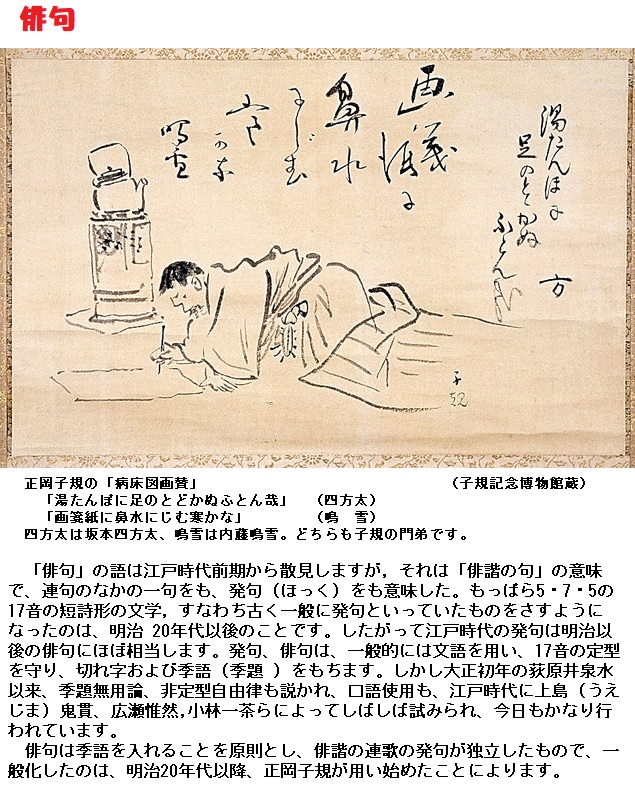 俳句
湯たんぽに
足のとどかぬ
ふとん哉
方
画箋紙に
鼻水
にじむ
寒さ
かな
鳴雪
子規
正岡子規の「病床図画賛」 （子規記念博物館蔵）
「湯たんぽに足のとどかぬふとん哉」 （四方太）
「画箋紙に鼻水にじむ寒かな」 （鳴 雪）
四方太は坂本四方太、鳴雪は内藤鳴雪。どちらも子規の門弟です。
「俳句」の語は江戸時代前期から散見しますが，それは「俳諧の句」の意味
で、連句のなかの一句をも、発句（ほっく）をも意味した。もっぱら5・7・5の
17音の短詩形の文学，すなわち古く一般に発句といっていたものをさすように
なったのは、明治 20年代以後のことです。したがって江戸時代の発句は明治以
後の俳句にほぼ相当します。発句、俳句は、一般的には文語を用い、17音の定型
を守り、切れ字および季語（季題 ）をもちます。しかし大正初年の荻原井泉水
以来、季題無用論、非定型自由律も説かれ、口語使用も、江戸時代に上島（うえ
じま）鬼貫、広瀬惟然,小林一茶らによってしばしば試みられ、今日もかなり行
われています。
俳句は季語を入れることを原則とし、俳諧の連歌の発句が独立したもので、一
般化したのは、明治20年代以降、正岡子規が用い始めたことによります。